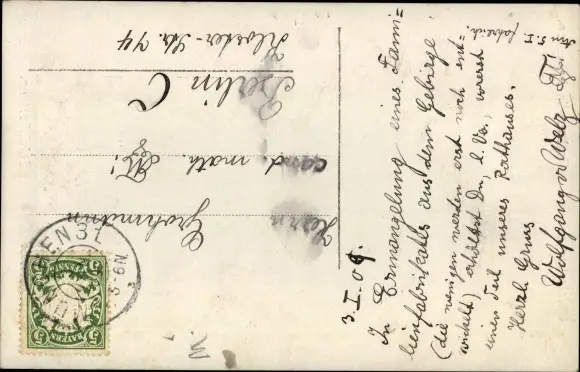 Herrn
cand. math. Grohmann
Berlin C
Kloster-Str. 74
3. I. 09.
In Ermangelung eines Fami=
lienfabrikates aus dem Gebirge
(die wenigen werden erst noch ent=
wickelt) erhältst Du, l. Va., zuerst
einen Teil unseres Rathauses.
Herzl. Gruss
Wolfgang v Welz
MÜNCHEN 31
BAYERN
5
PFENNIG
5